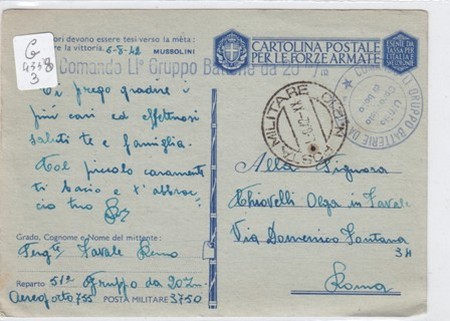 G
4338
3
ori devono essere tesi verso la mèta:
re la vittoria.
MUSSOLINI
6-8-42
Comando LI° Gruppo Batterie da 20 m/m
CARTOLINA POSTALE
PER LE FORZE ARMATE
ESENTE
DA TASSA
PER L'ITALIA
POSTA MILITARE
GRUPPO BATTERIE DA
Ti prego gradire i
più cari ed effettuosi
saluti te e famiglia.
Col piccolo caramente
ti bacio e t'abbrac-
cio tuo
Alla Signora
Chiovelli Olga in Favale
Via Domenico Fontana
34
Roma
Grado, Cognome e Nome del mittente:
Serg.te Favale Remo
Reparto 51° Gruppo da 20 m/m
Aeroporto 755 POSTA MILITARE 3750